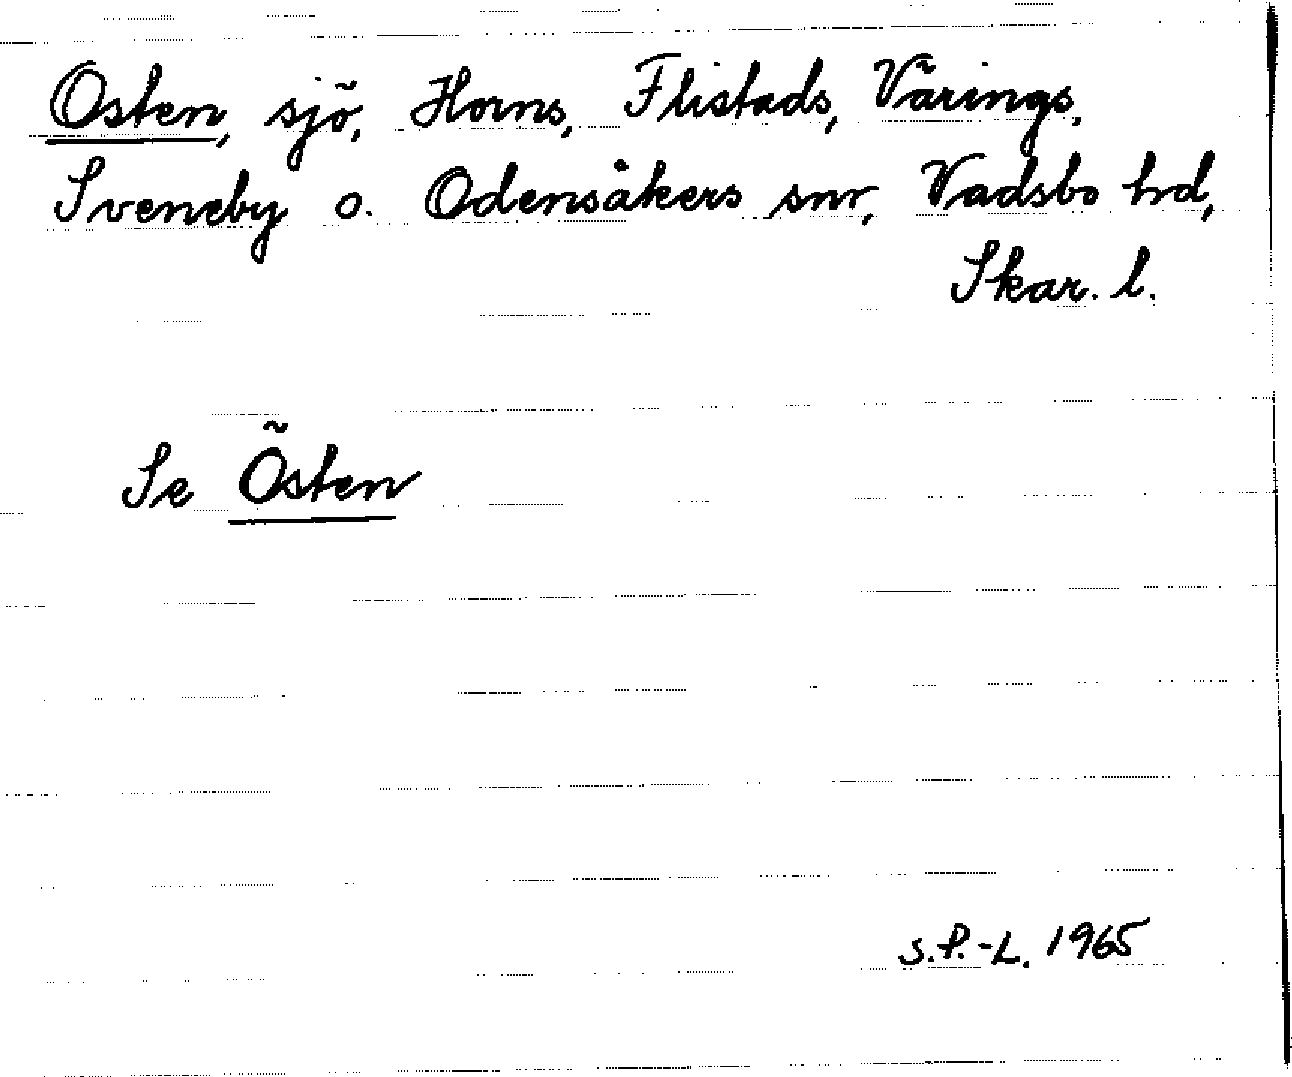 Osten, sjö, Horns, Flistads, Värings,
Sveneby o. Odensåkers snr, Vadsbo hd,
Skar. l.
Se Östen
S.P.-L. 1965